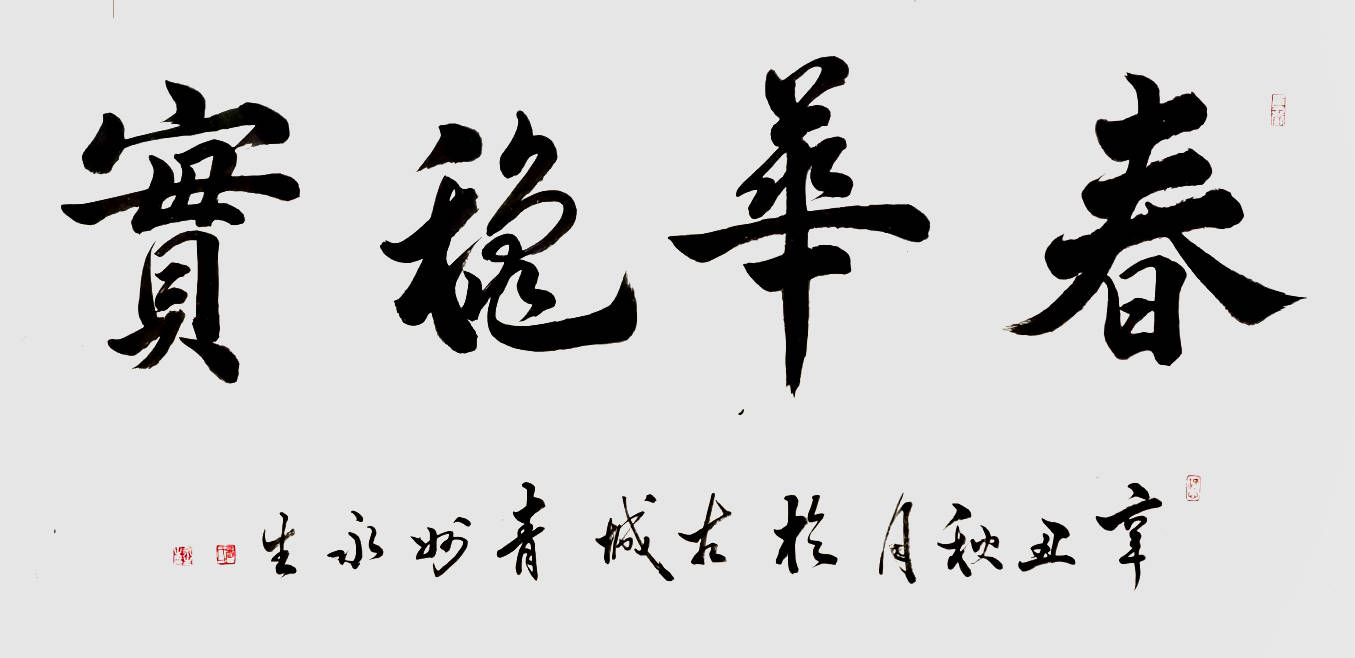 春華穐實
辛丑秋月於古城青州永生